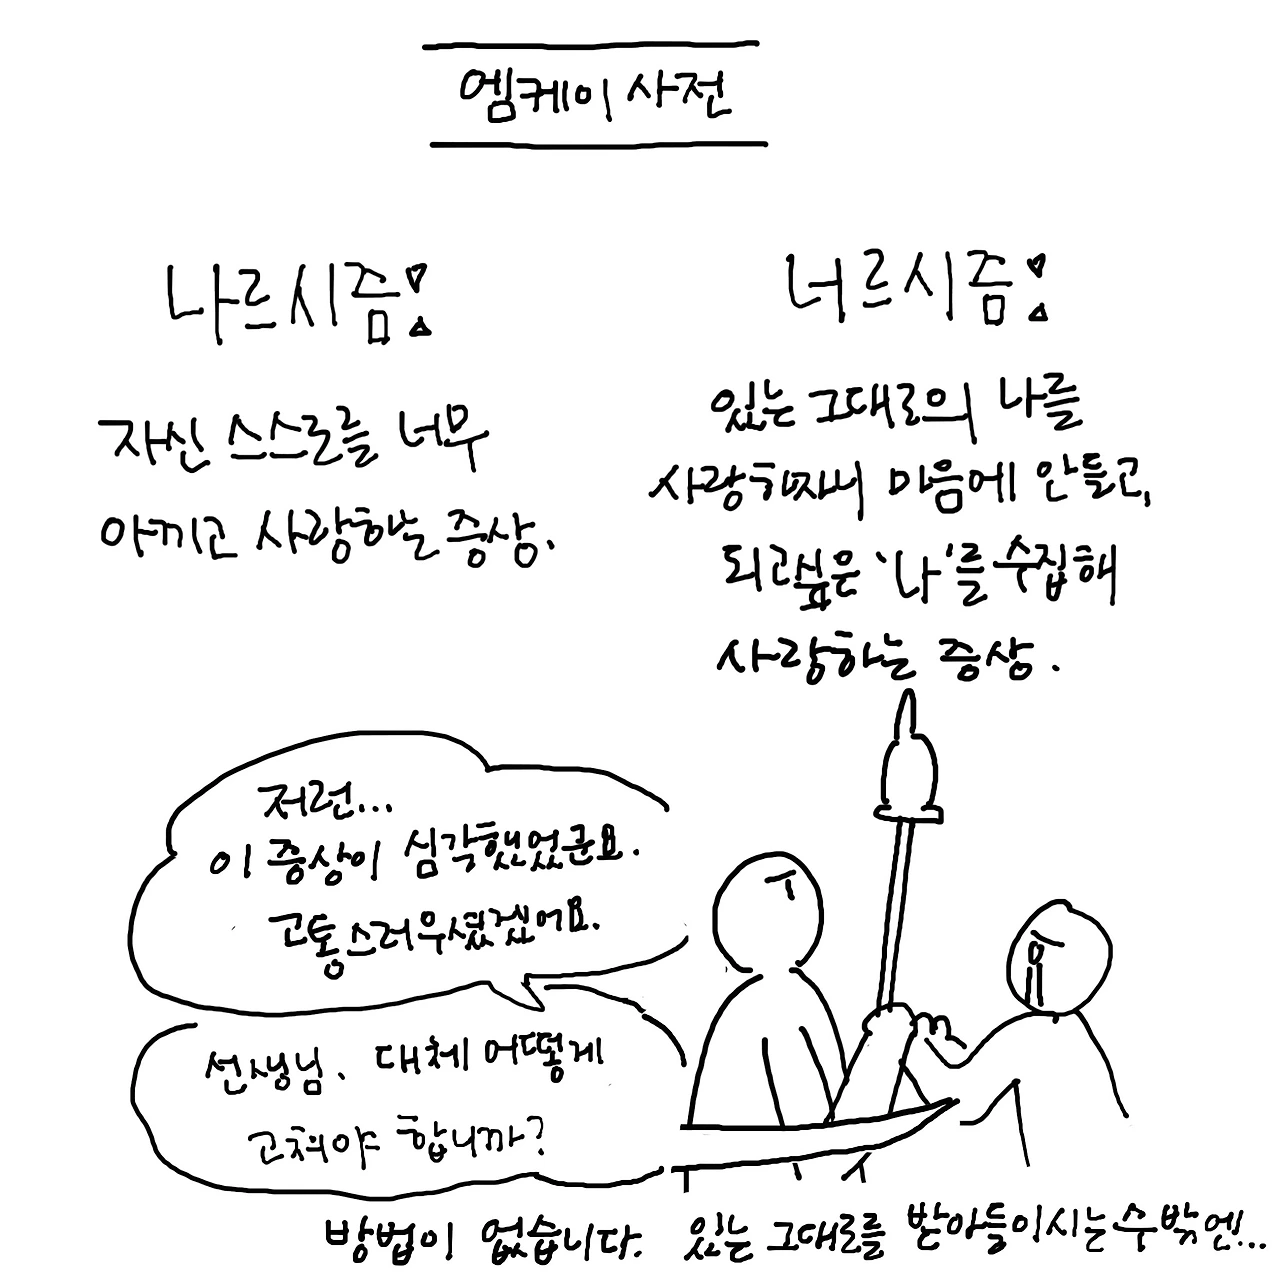 엠케이 사전
나르시즘:
자신 스스로를 너무
아끼고 사랑하는 증상.
너르시즘:
있는 그대로의 나를
사랑하자니 마음에 안들고,
되고싶은 '나'를 수집해
사랑하는 증상.
저런...
이 증상이 심각했었군요.
고통스러우셨겠어요.
선생님. 대체 어떻게
고쳐야 합니까?
방법이 없습니다. 있는 그대로를 받아들이시는수밖엔...